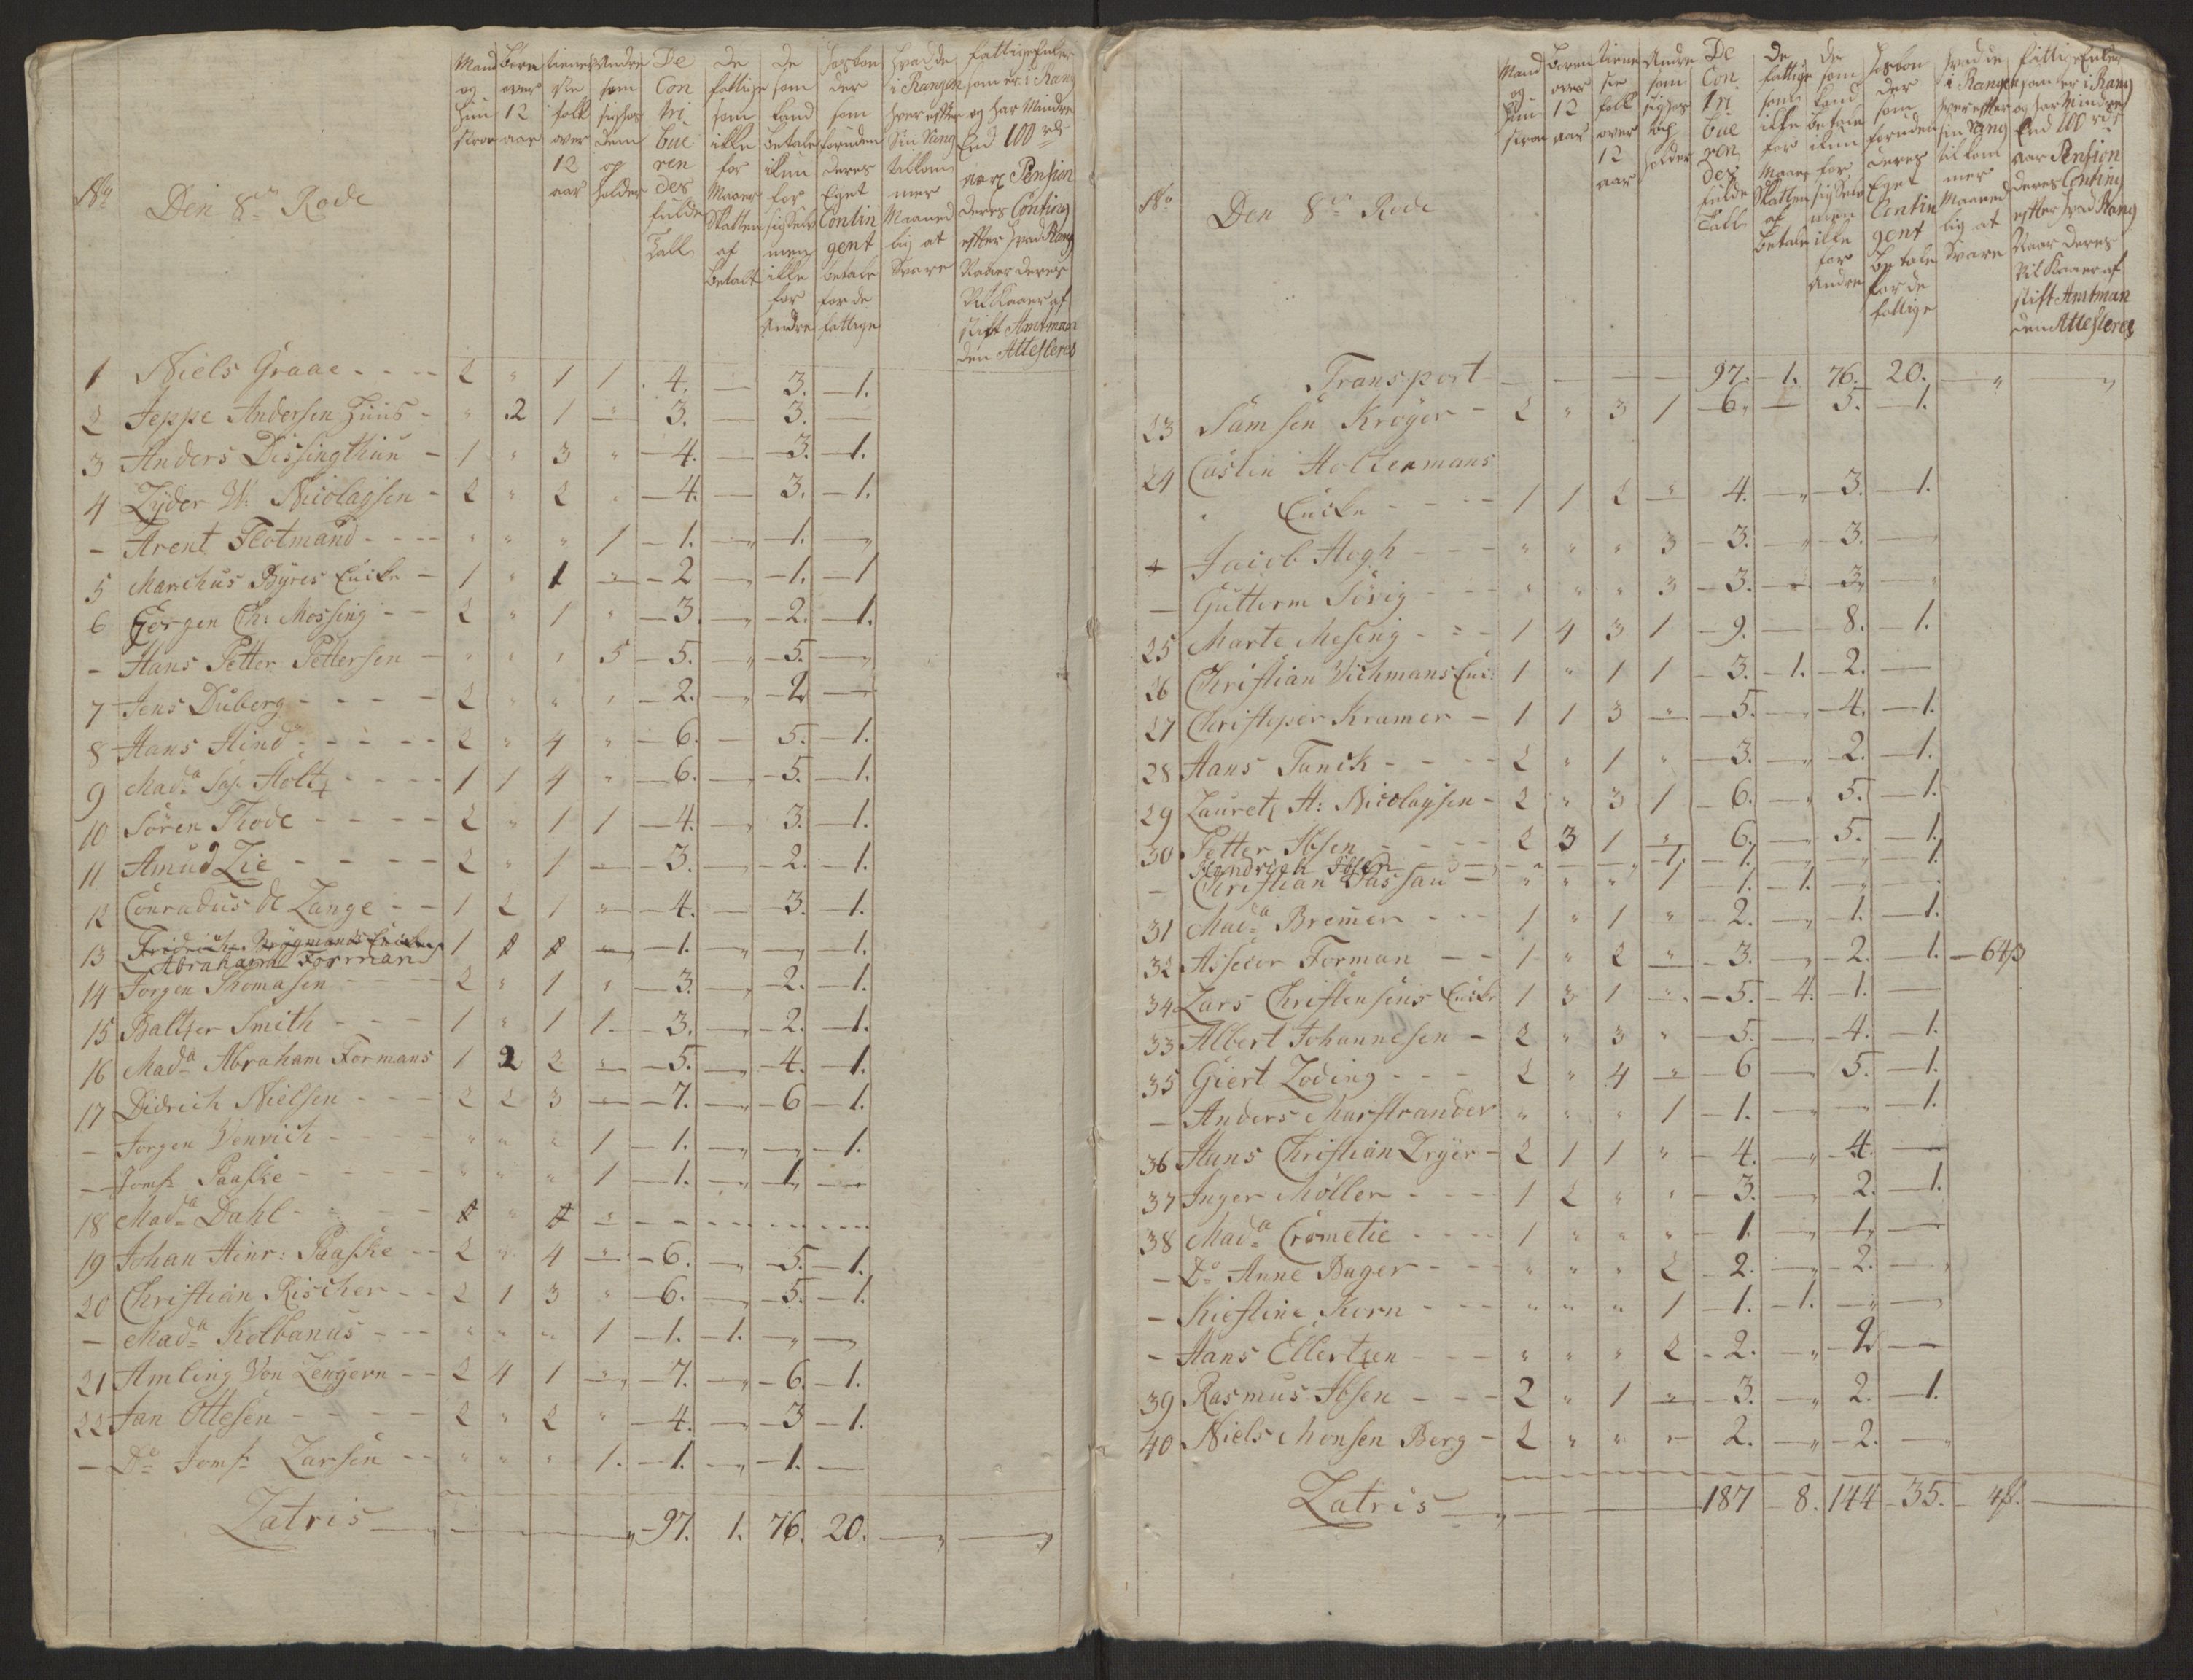 No Den 8de Rode
Mand og Hustroe
Børn over 12 aar
tieneste folk over 12 aar
Andre som sig hos dem opholder
De Con tri bue ren des fulde Tall
De fattige som ikke for Maaer Skatten af betalt
de som kand betale ikun for sig selv men ikke for Andre
der som foruden deres Eget Contin gent betale for de fattige
hvad de i Rangen hver efter Sin Rang tilkom mer Maaned lig at Svare
fattige som er i Rang og har Mindre End 100 rdr Pension deres Conting efter hvad Rang deres Vilkaaer af stift Amtman den Attesteres
1 Niels Graae - - - - 2 " 1 1 4. — 3. — 1.
2 Jeppe Andersen Huus - " 2 1 " 3. — 3. —
3 Anders Dissingthun - 1 " 3 " 4. — 3. — 1.
4 Zyder W: Nicolaysen - 2 " 2 " 4. — 3. — 1.
- Arent Flotmand - - - " " " 1 1. — 1. —
5 Marchus Byres Encke - 1 " 1 " 2 — 1. — 1
6 Jørgen Ch: Mossing - - 2 " 1 " 3. — 2. — 1.
- Hans Petter Pettersen - " " " 5 5. — 5. —
7 Jens Duberg - - - - 2 " " " 2. — 2 —
8 Hans Hind - - - - 2 " 4 " 6. — 5. — 1.
9 Mada Holtz - - - - 1 1 4 " 6. — 5. — 1.
10 Søren Thode - - - - 2 " 1 1 4. — 3. — 1.
11 Amud Lie - - - - 2 " 1 — 3. — 2. — 1.
12 Conradus de Lange - - 1 2 1 " 4. — 3. — 1.
13 Fridrich Encke 1 " 1. — — 1.
Abraham Forman
14 Jørgen Thomasen - - - 2 " 1 " 3. — 2. — 1.
15 Baltzer Smith - - - 1 " 1 1. 3. — 2. — 1.
16 Mada Abraham Formans 1 2 2 " 5. — 4. — 1.
17 Didrich Nielsen - - - 2 2 3 — 7. — 6 — 1.
- Jørgen Wenrich - - - " " " 1 1. — — 1.
- Jomfr Paaske - - - - " " " 1 1. — 1 —
18 Mada Dahl - - - -
19 Johan Hinr: Paaske - - 2 " 4 " 6. — 5. — 1.
20 Christian Rischer - - 2 1 3 " 6. — 5. — 1.
- Mada Kolbanus - - " " " 1 1. 1. — —
21 Amling Von Zengern - - 2 4 1 " 7. — 6. — 1.
22 Jan Ottesen - - - - 2 " 2 " 4. — 3 — 1.
- Do Jomfr Larsen - - " " " 1. 1. — 1. —
Latris — 97. 1. 76. 20. — —
No Den 8de Rode
Mand og Hustroe
Børen over 12 aar
tiene ste folk over 12 aar
Andre som sig hos opholder
De Con tri bue ren des fulde Tall
De fattige som ikke for Maaer Skatten af betale
de som kand betale ikun for sig selv men ikke for Andre
der som foruden deres Eget Contin gent betale for de fattige
hvad de i Rangen hver efter sin rang tilkom mer Maaned lig at Svare
fattige som er i Rang og har Mindre End 100 rdr aar Pension deres Conting efter hvad Rang deres Vilkaaer af stift Amtman den Attesteres
Transport — 97. 1. 76. 20. — —
23 Samsen Krøger - 2 " 3 1 6. — 5. — 1.
24 Casten Holtermans
Encke - - - 1 1 2 " 4. — 3. — 1.
+ Jacob Hogh - - - " " " 3 3. — 3. —
- Gutterm Sørig - - - " " " 3 3. — 3 —
25 Marte Mesing - - - 1 4 3 1 9. — 8. — 1.
26 Christian Wichmans Enc: 1 " 1 1 3. 1. 2. —
27 Christoper Kramer - 1 1 3 " 5. — 4. — 1.
28 Hans Funck - - - 2 " 1 " 3. — 2. — 1.
29 Lauretz H: Nicolaysen - 2 " 3 1 6. — 5. — 1.
30 Petter Ibsen - - - 2 3 1 " 6. — 5. — 1.
Hendrich Ibsen — 1. 1. — — 1.
- Christian Passau - " " " 1 1. 1. — —
31 Mada Bremer - - - 1 " 1 " 2. — 1. — 1.
32 Assecor Forman - - 1 " 2 " 3. — 2. 1. — 64ß
34 Lars Christensens Encke 1 3 1 " 5. 4. 1. —
33 Albert Johannesen - 2 " 3 " 5. — 4. — 1.
35 Giert Loding - - - 2 " 4 " 6 — 5. — 1.
- Anders Marstrander " " " 1 1. — — 1.
36 Hans Christian Dryer - 2 1 1 " 4. — 4. —
37 Inger Møller - - - 1 2 " " 3. — 2. — 1.
38 Mada Crometie - - - 1 " " " 1. — 1. —
- Do Anne Bager - - " " " 2 2. — 2. —
- Kiestine Korn - - - " " " 1 1. 1. — —
- Hans Ellertzen - - - " " " 2 2. — 2 —
39 Rasmus Ibsen - - - 2 " 1 " 3. — 2. — 1.
40 Niels Monsen Berg - 2 " " " 2. — 2. —
Latris — 187 8. 144 35. 4ß. —